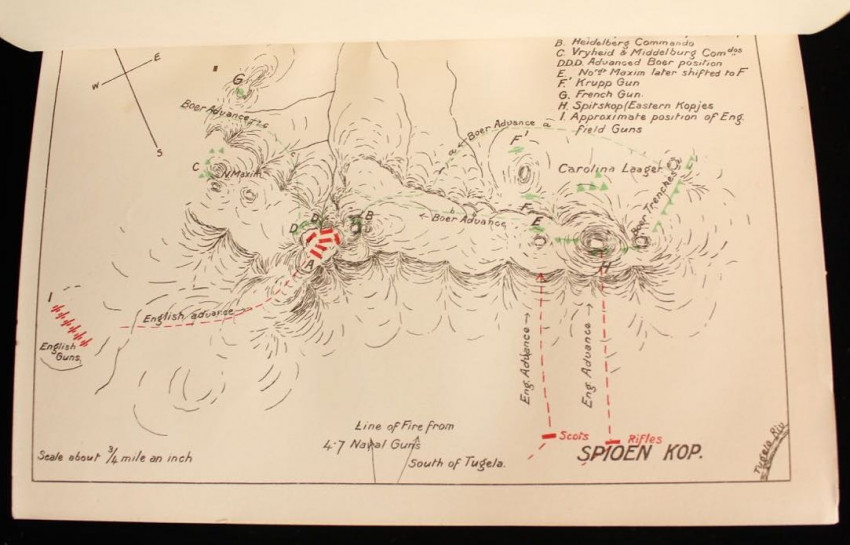 B. Heidelberg Commando
C. Vryheid & Middelburg Comdos
D.D.D. Advanced Boer position
E. Nordt Maxim later shifted to F
F.' Krupp Gun
G. French Gun
H. Spitskop (Eastern Kopjes
I Approximate position of Eng.
field Guns
W
E
S
G
Boer Advance
C
N Maxim
a
Boer Advance a
F'
Carolina Laager
Boer Trenches
D
D
B
Boer Advance
E
A
H
I
English advance
English
Guns.
Eng. Advance
Eng. Advance
Line of Fire from
4·7 Naval Guns
South of Tugela.
Scots
Rifles
SPIOEN KOP.
Scale about 3/4 mile an inch
Tugela Riv